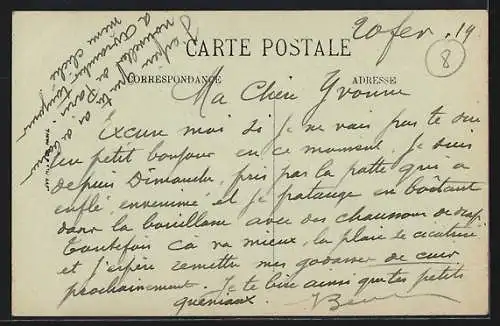 20 fev. 19
8
CARTE POSTALE
CORRESPONDANCE
ADRESSE
Ma Chère Yvonne
Excuse moi si je ne vais pas te dire
un petit bonjour en ce moment. Je suis
depuis Dimanche, pris pas la patte qui a
enflé, envenimé et je patauge en boîtant
dans la bouillasse avec des chaussons de drap
Toutefois ça va mieux, la plaie se cicatrise
et j'espère remettre mes godasses de cuir
prochainement. Je te bise ainsi que tes petits
queniaux.
J'espère
nouvelles
toujours
même cliché